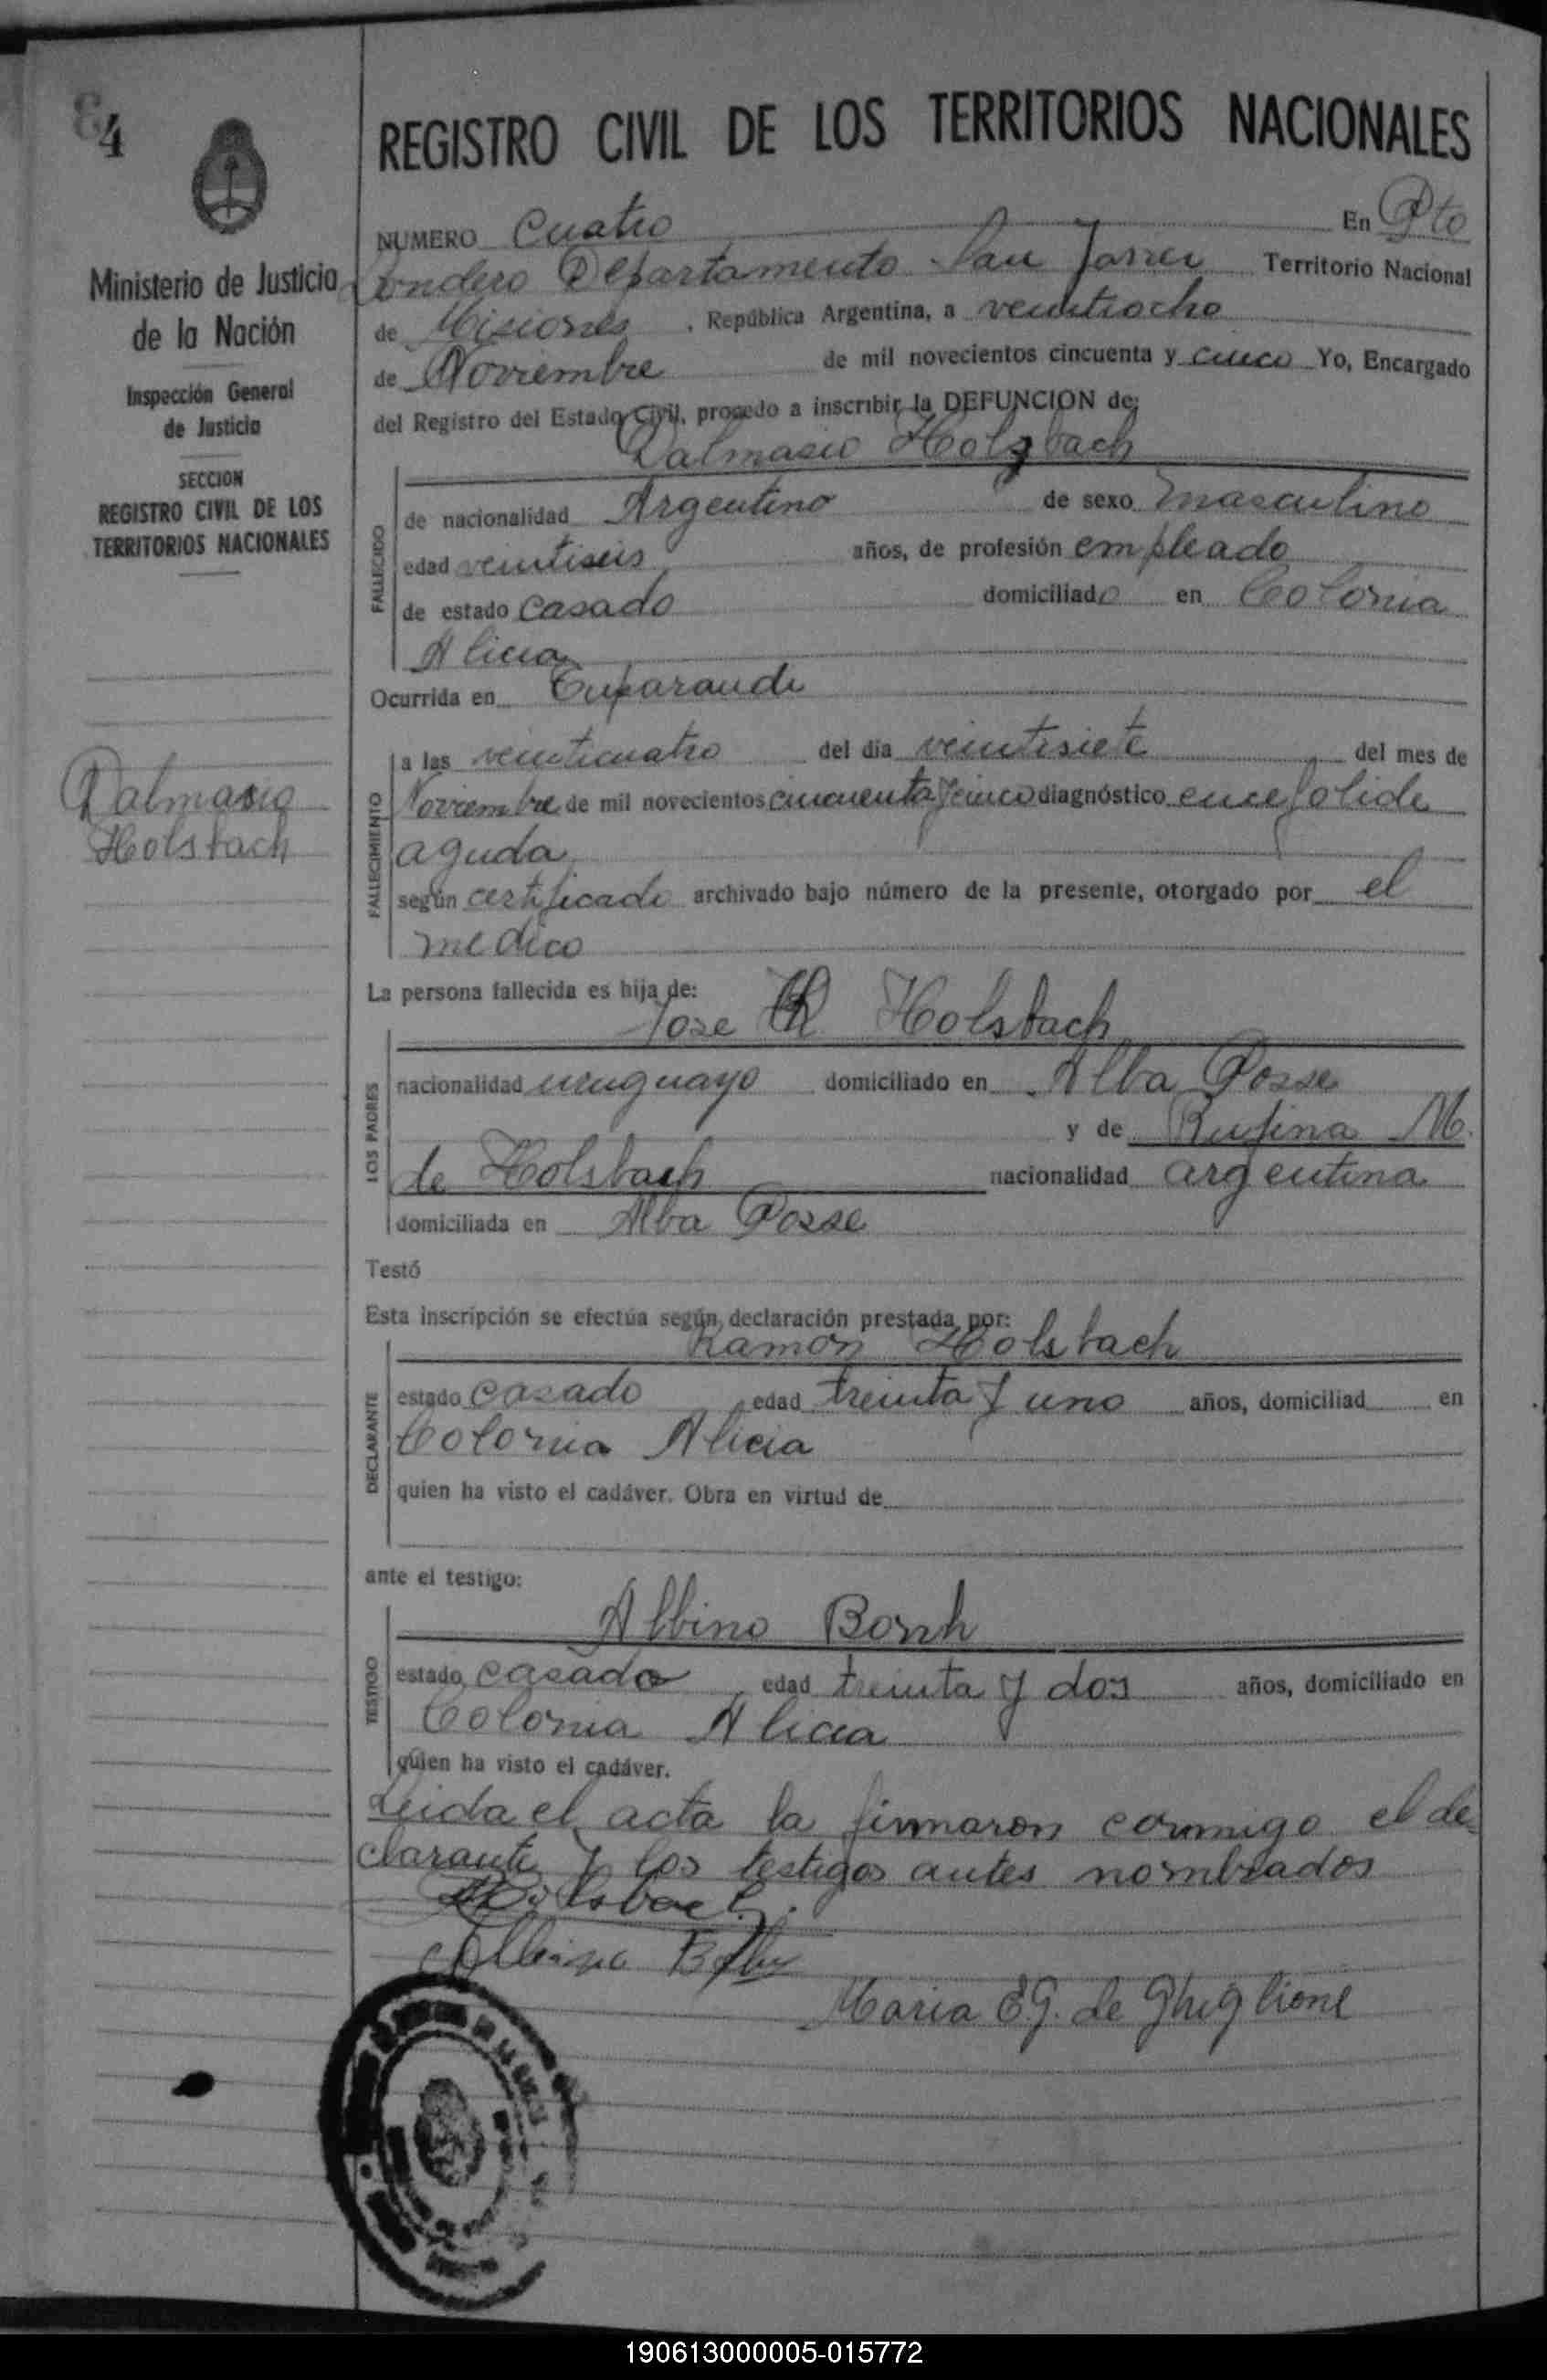 84
Ministerio de Justicia
de la Nación
Inspección General
de Justicia
SECCION
REGISTRO CIVIL DE LOS
TERRITORIOS NACIONALES
Dalmasio
Holsbach
REGISTRO CIVIL DE LOS TERRITORIOS NACIONALES
NUMERO Cuatro En Pto
Londero Departamento San Javier Territorio Nacional
de Misiones, República Argentina, a veintiocho
de Noviembre de mil novecientos cincuenta y cinco Yo, Encargado
del Registro del Estado Civil, procedo a inscribir la DEFUNCION de:
Dalmasio Holsbach
FALLECIDO
de nacionalidad Argentino de sexo masculino
edad veintiseis años, de profesión empleado
de estado casado domiciliado en Colonia
Alicia
Ocurrida en Tuparandi
FALLECIMIENTO
a las veinticuatro del día veintisiete del mes de
Noviembre de mil novecientos cincuenta y cinco diagnóstico encefolide
aguda
según certificado archivado bajo número de la presente, otorgado por el
medico
La persona fallecida es hija de:
Jose Holsbach
LOS PADRES
nacionalidad uruguayo domiciliado en Alba Posse
y de Rufina M.
de Holsbach nacionalidad argentina
domiciliada en Alba Posse
Testó
Esta inscripción se efectúa según declaración prestada por:
Ramon Holsbach
DECLARANTE
estado casado edad treinta y uno años, domiciliad en
Colonia Alicia
quien ha visto el cadáver. Obra en virtud de
ante el testigo:
Albino Bonh
TESTIGO
estado casado edad treinta y dos años, domiciliado en
Colonia Alicia
quien ha visto el cadáver.
Leida el acta la firmaron conmigo el de
clarante y los testigos antes nombrados
Holsbach
Albino
Maria E G. de Ghiglione
190613000005-015772